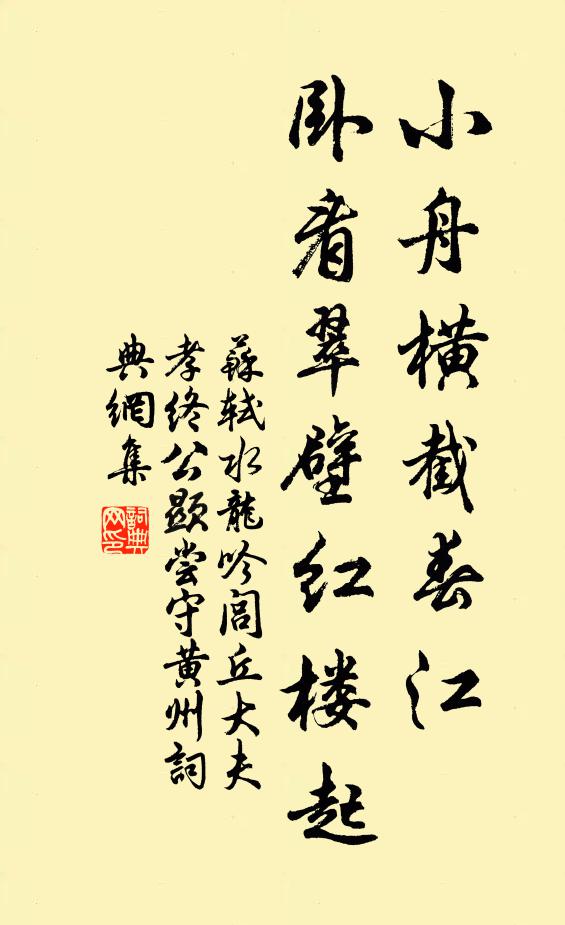 小舟橫截春江
卧看翠壁红楼起
蘇軾水龍吟閭丘大夫
孝終公顯嘗守黃州詞
典網集
詞典
网印